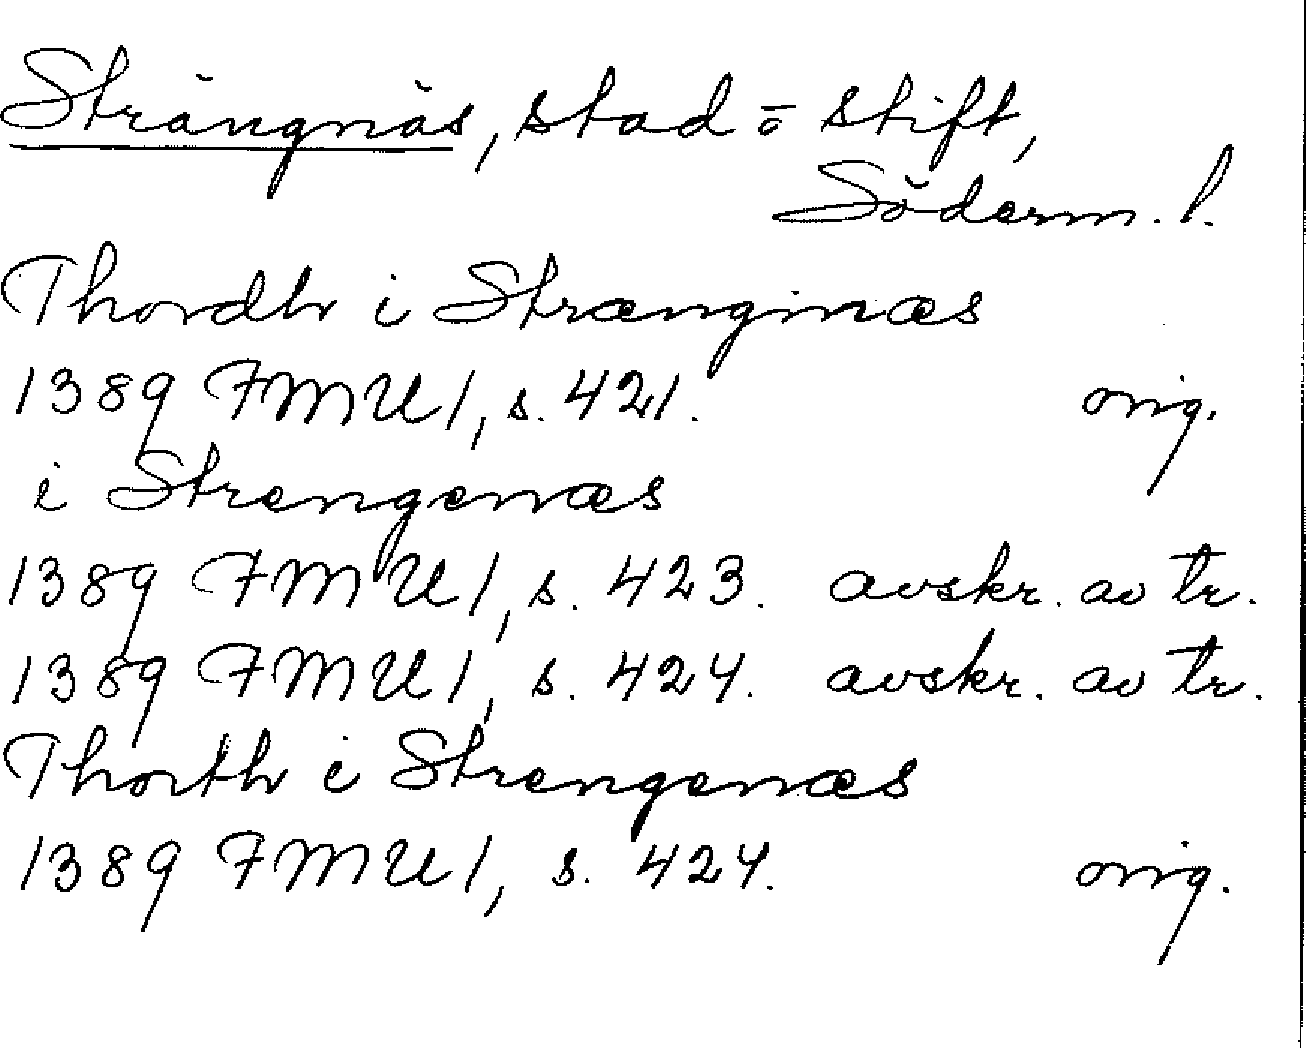 Strängnäs, stad o stift,
Söderm. l.
Thordh i Strænginæs
1389 FMU 1, s. 421. orig.
i Strengenæs
1389 FMU 1, s. 423. avskr. av tr.
1389 FMU 1, s. 424. avskr. av tr.
Thorth i Strengenæs
1389 FMU 1, s. 424. orig.